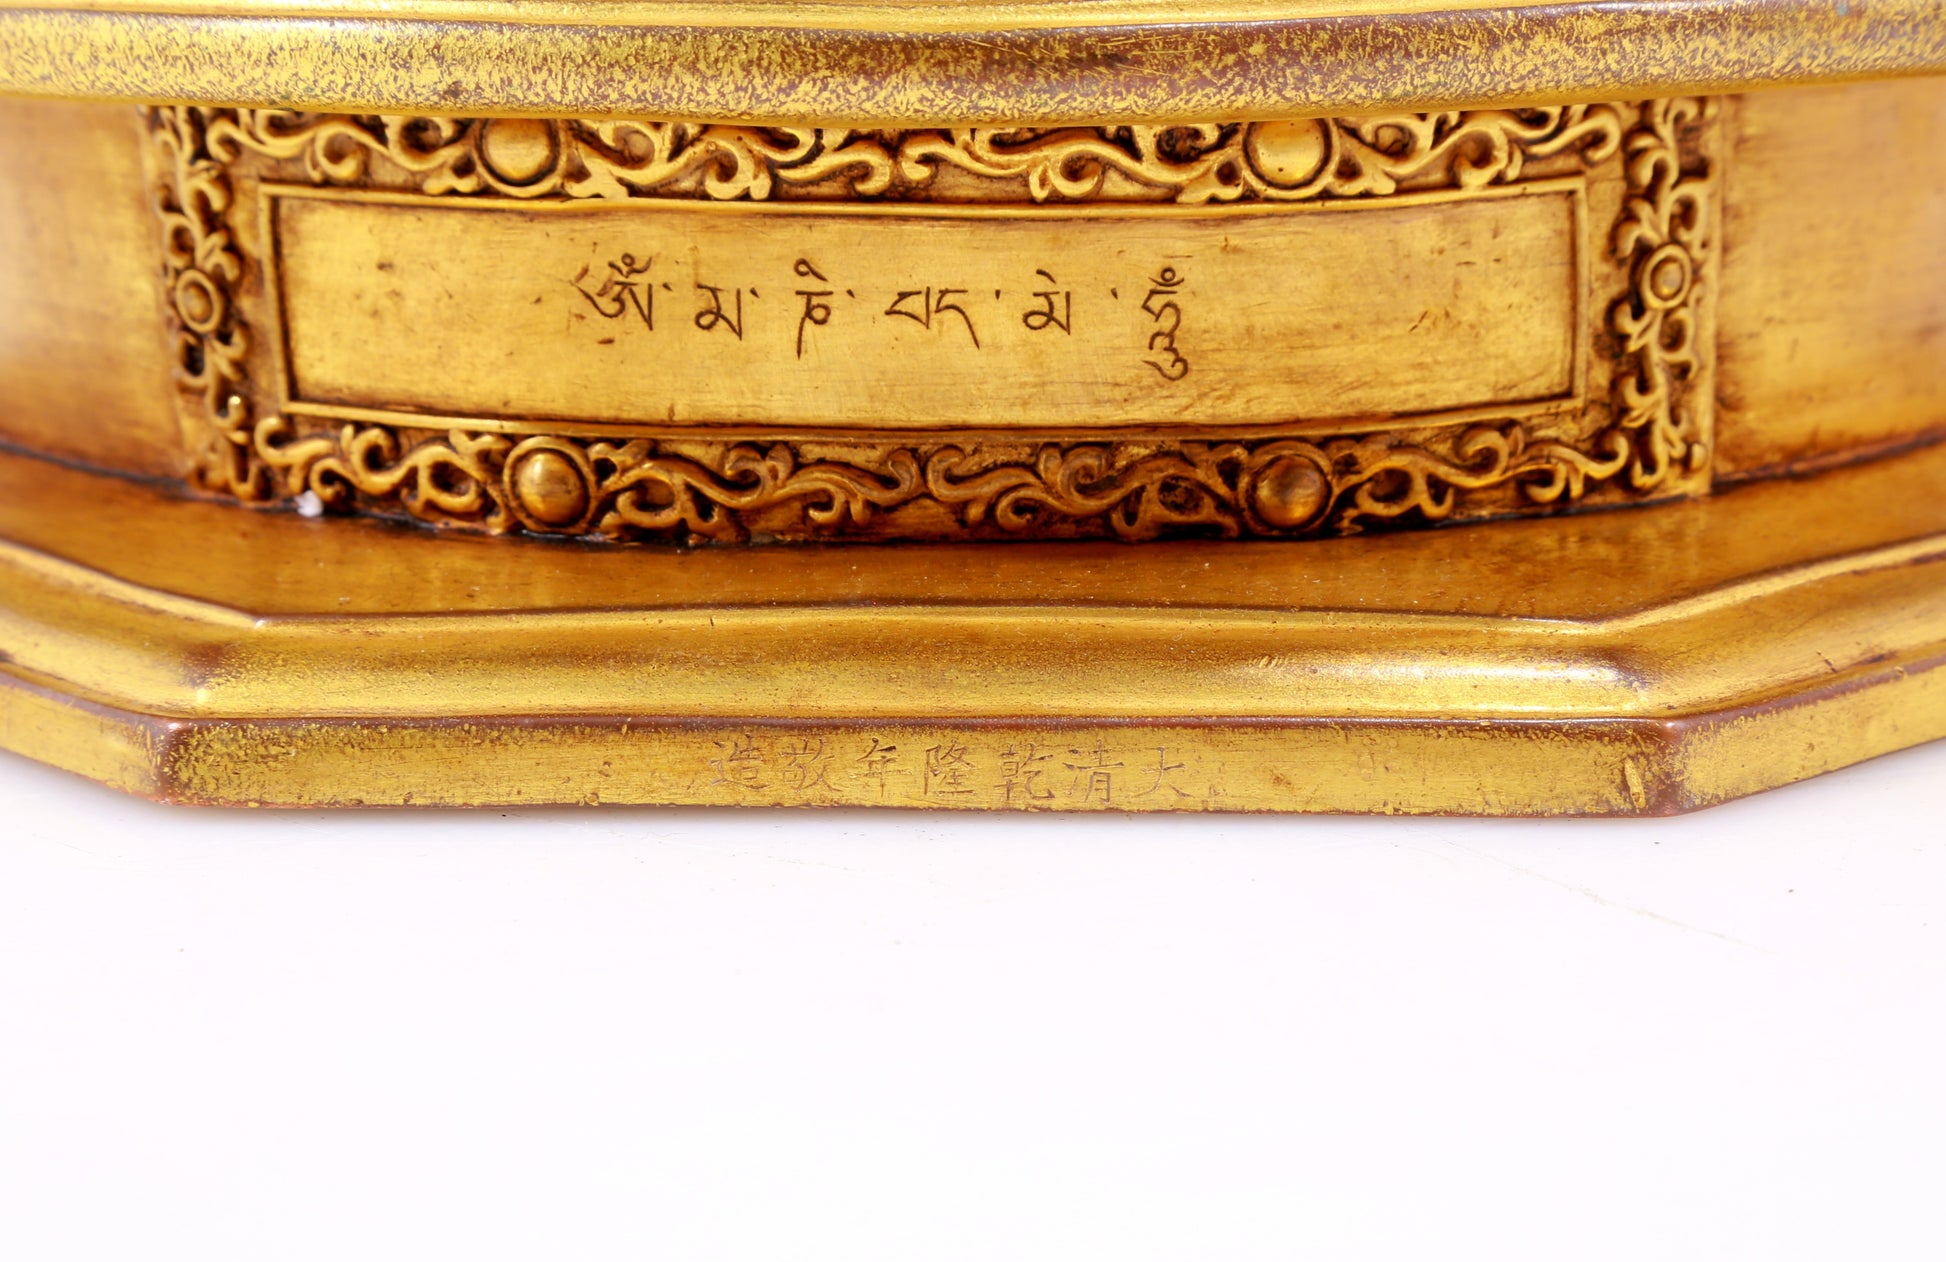 ཨོཾ་མ་ཎི་པད་མེ་ཧཱུྃ
大清乾隆年敬造